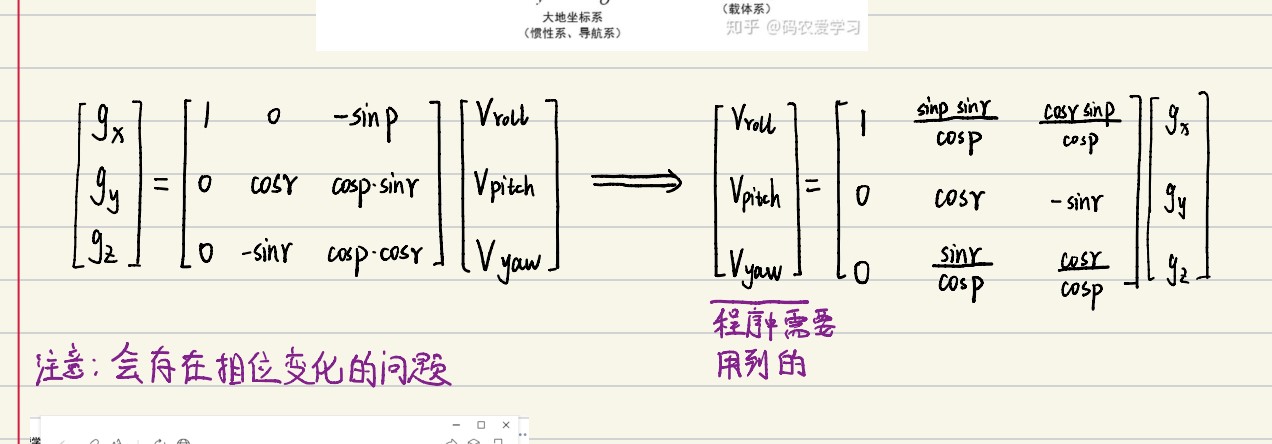 大地坐标系
（惯性系、导航系）
（载体系）
知乎 @码农爱学习
[gx; gy; gz] = [1 0 -sinp; 0 cosr cosp·sinr; 0 -sinr cosp·cosr] [Vroll; Vpitch; Vyaw] ⟹ [Vroll; Vpitch; Vyaw] = [1 sinp sinr/cosp cosr sinp/cosp; 0 cosr -sinr; 0 sinr/cosp cosr/cosp] [gx; gy; gz]
程序中需要
用到的
注意：会存在相位变化的问题